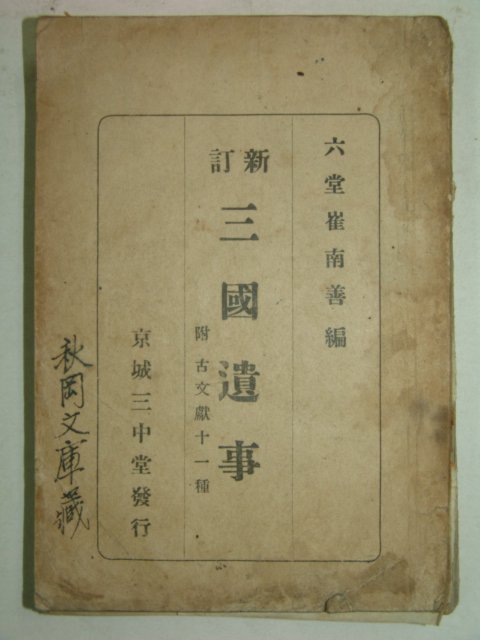 六堂崔南善編
新訂
三國遺事
附古文獻十一種
京城三中堂發行
秋岡文庫藏